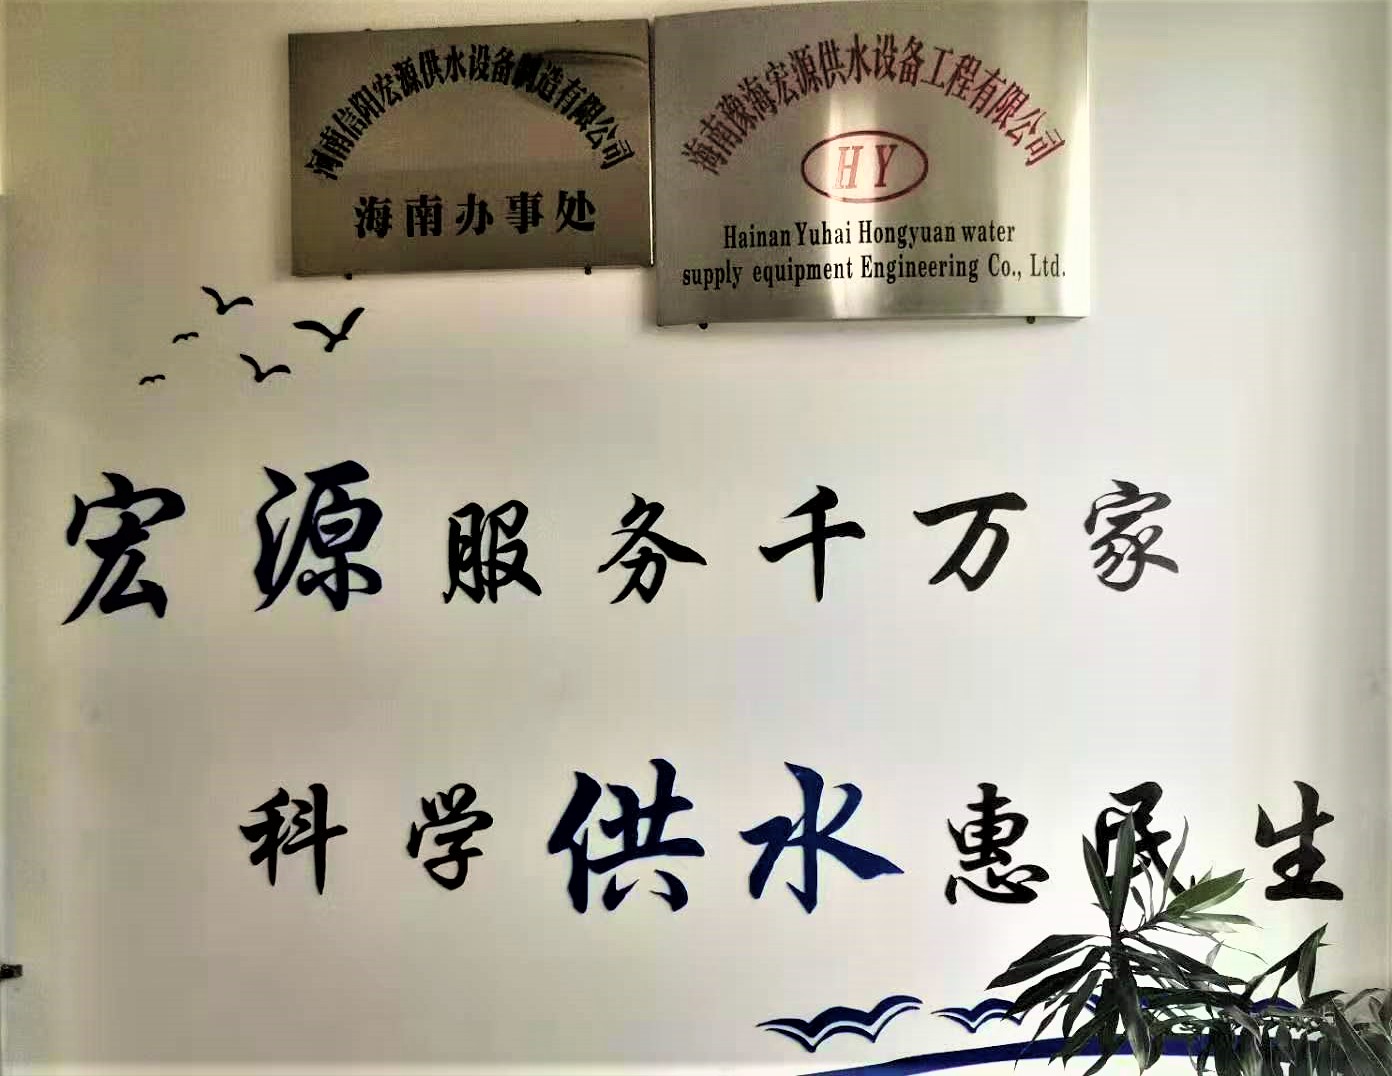 河南信阳宏源供水设备制造有限公司
海南办事处
海南豫海宏源供水设备工程有限公司
HY
Hainan Yuhai Hongyuan water
supply equipment Engineering Co., Ltd.
宏源服务千万家
科学供水惠民生